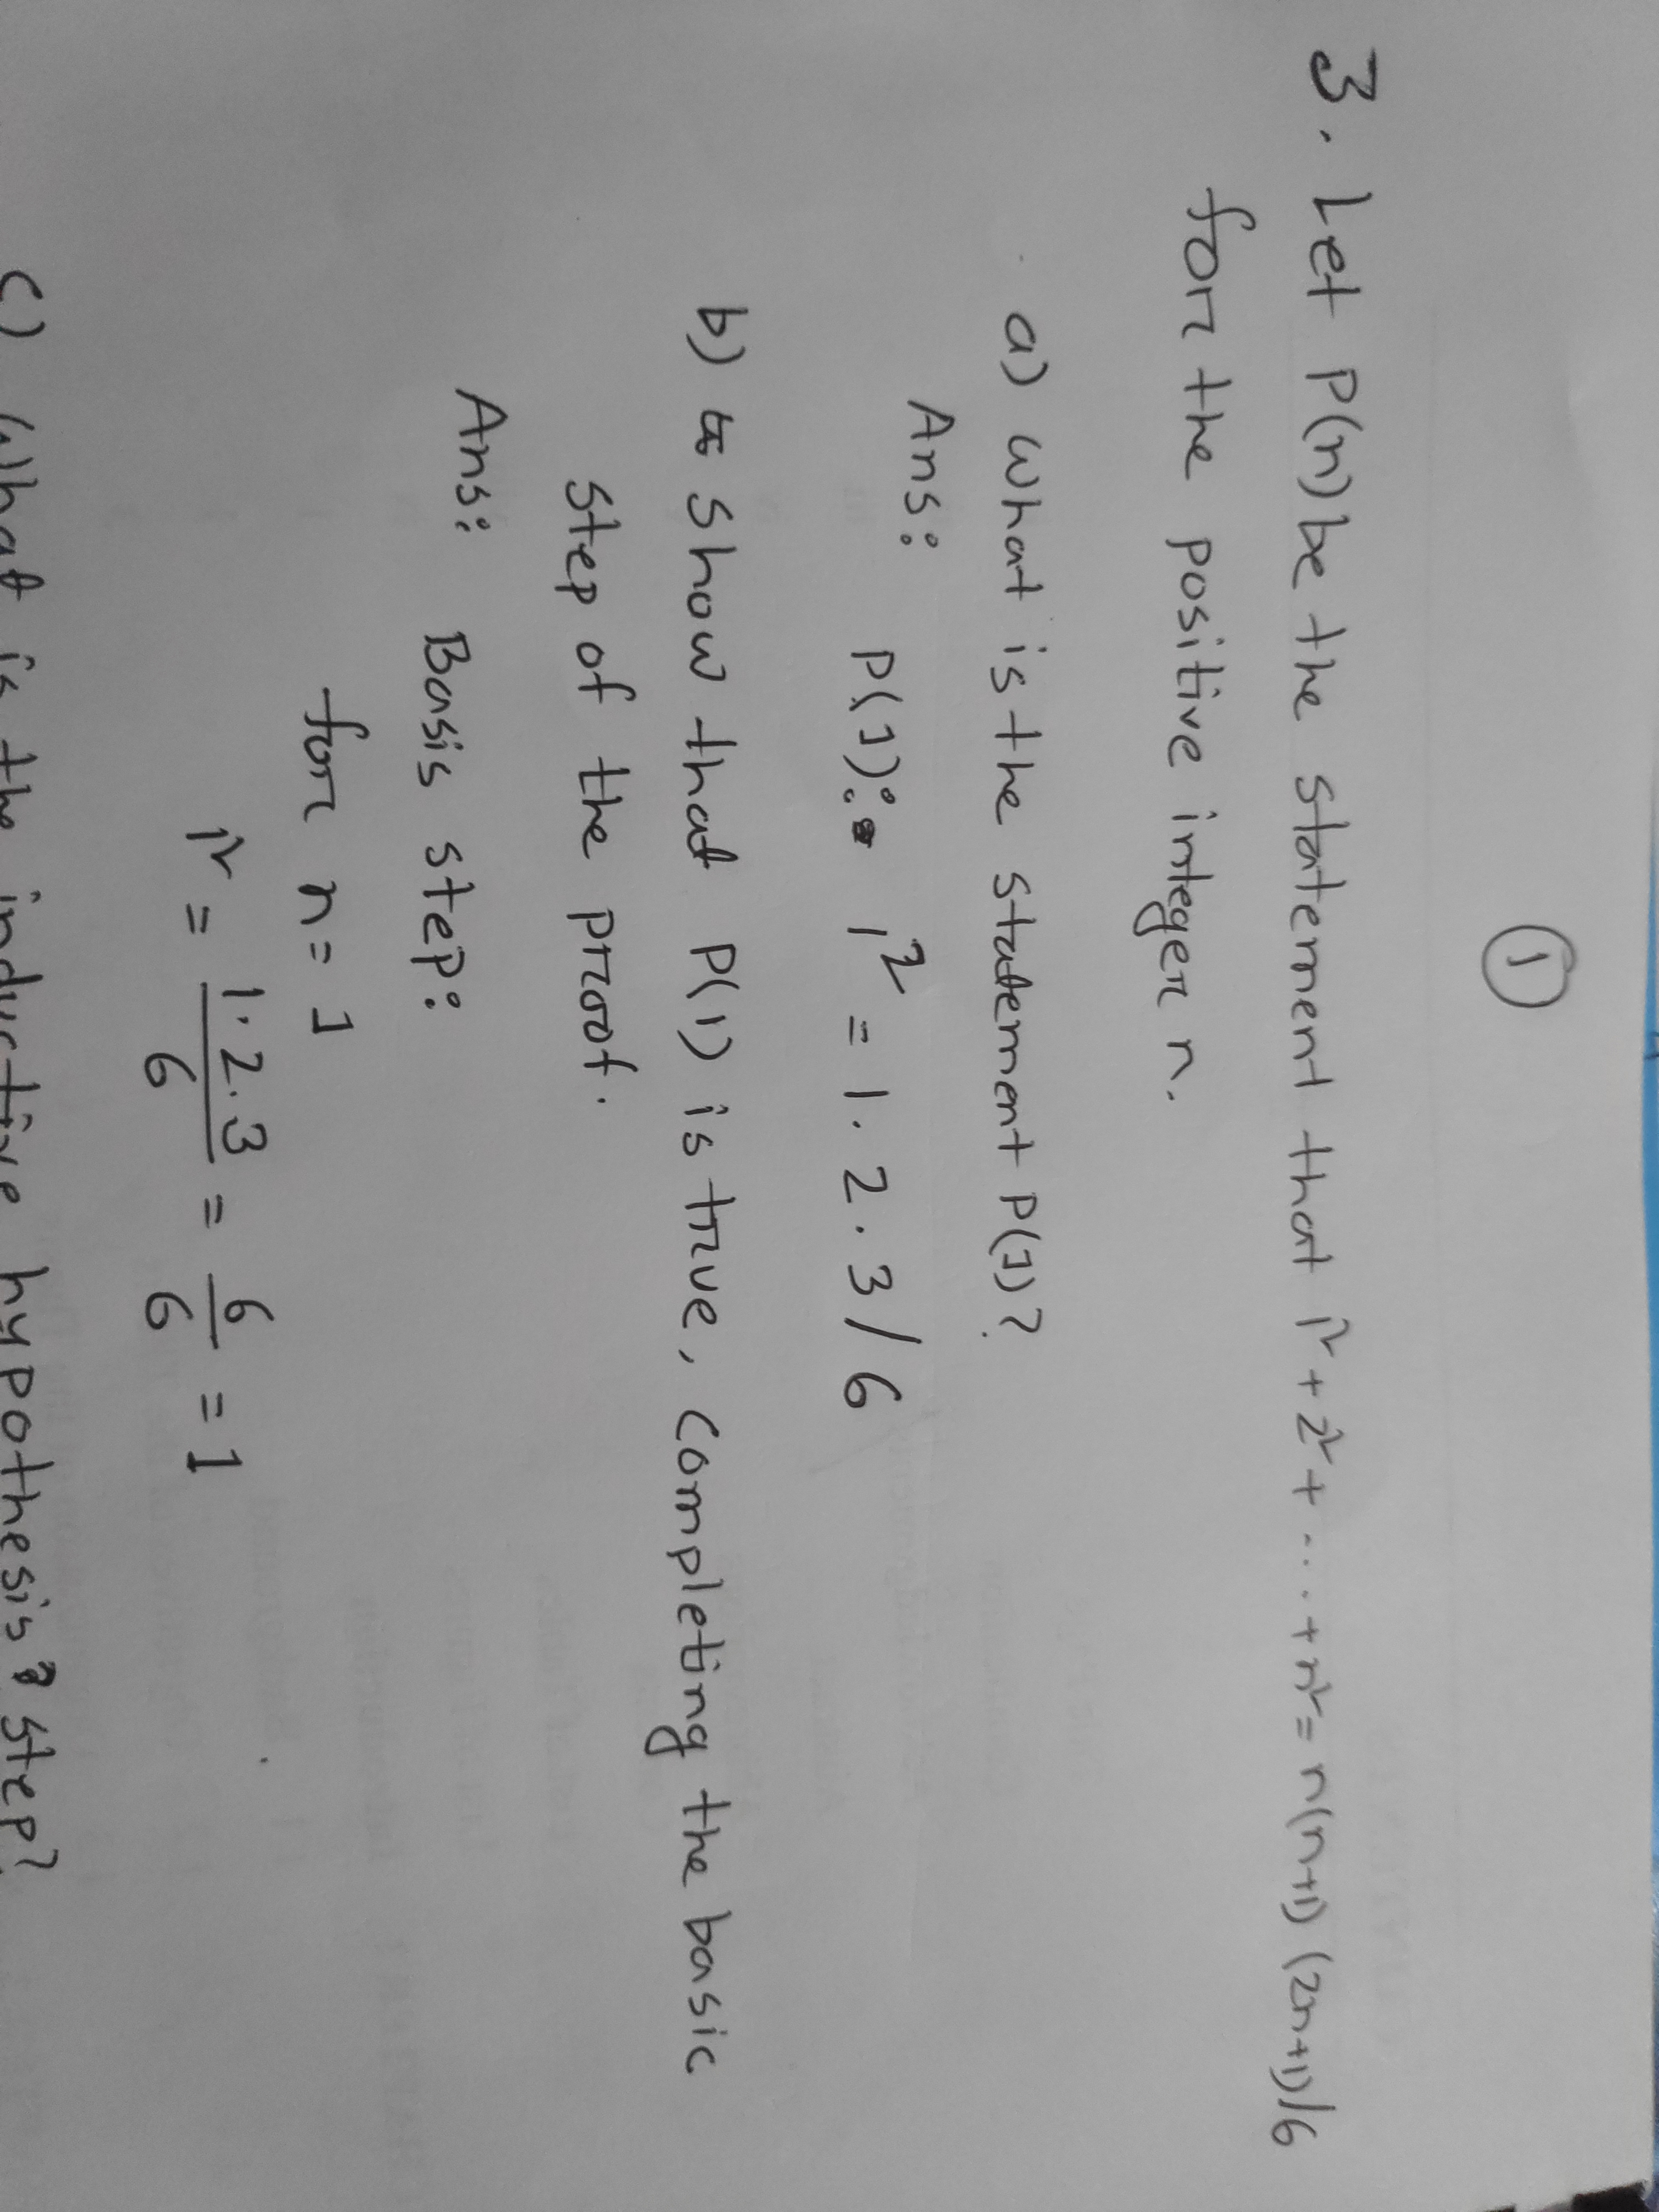 1
3. Let P(n) be the statement that 1² + 2² + ... + n² = n(n+1) (2n+1)/6
for the positive integer n.
a) What is the statement P(1)?
Ans:
P(1): 1² = 1.2.3/6
b) to show that P(1) is true, completing the basic
step of the proof.
Ans: Basis step:
for n=1
1² = 1.2.3/6 = 6/6 = 1
c) What is the inductive hypothesis? step?